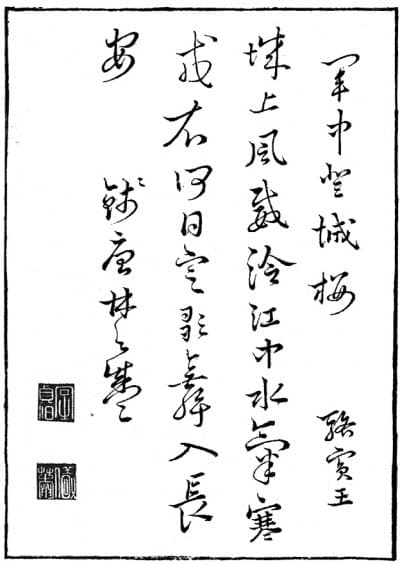 軍中登城樓 駱賓王
城上風威冷江中水氣寒
戎衣何日定歌舞入長
安
錢唐林之盛